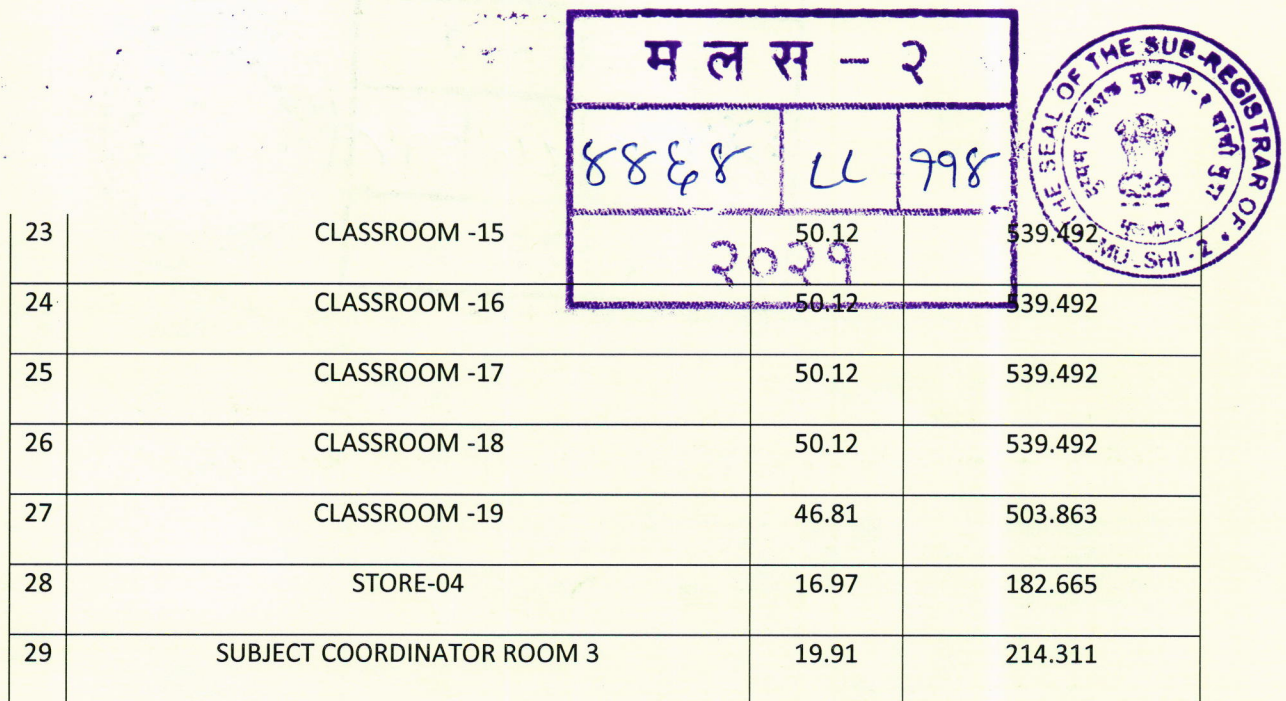 म ल स – २
४४६४ ८८ ११४
२०२१
THE SEAL OF THE SUB-REGISTRAR OF
23 CLASSROOM -15 50.12 539.492
24 CLASSROOM -16 50.12 539.492
25 CLASSROOM -17 50.12 539.492
26 CLASSROOM -18 50.12 539.492
27 CLASSROOM -19 46.81 503.863
28 STORE-04 16.97 182.665
29 SUBJECT COORDINATOR ROOM 3 19.91 214.311